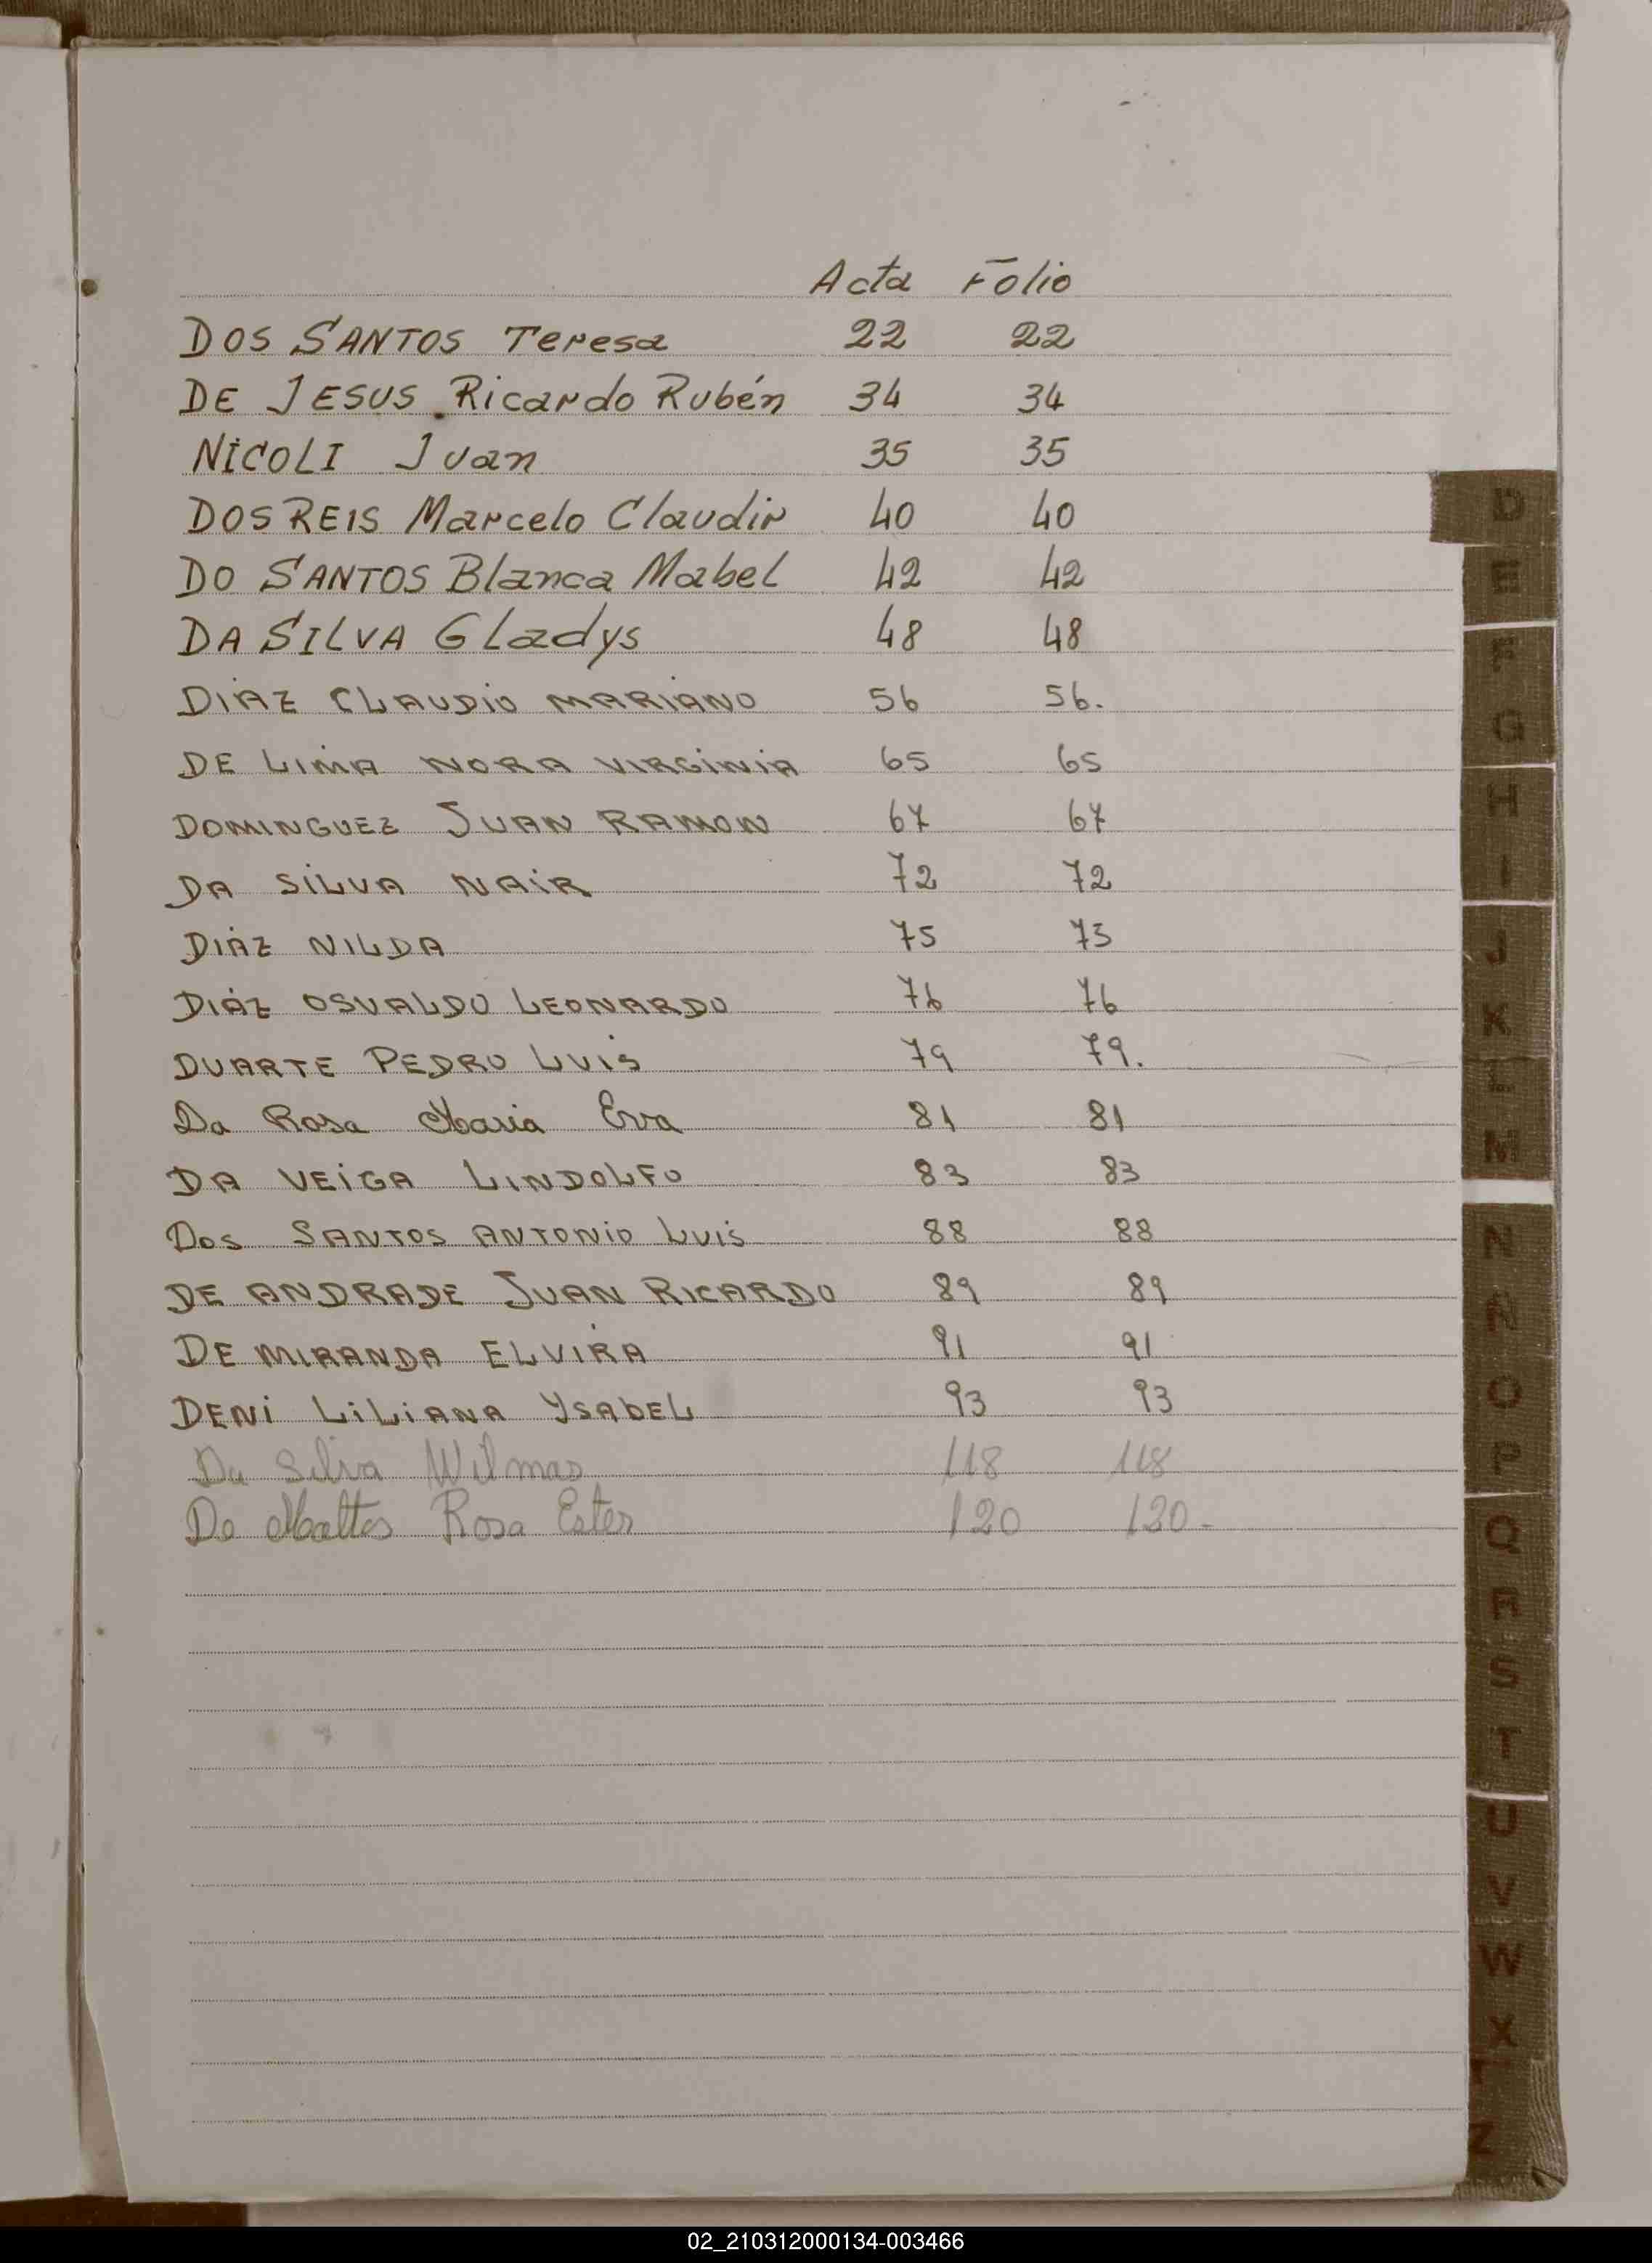 Acta Folio
DOS SANTOS Teresa 22 22
DE JESUS Ricardo Rubén 34 34
NICOLI Juan 35 35
DOS REIS Marcelo Claudir 40 40
DO SANTOS Blanca Mabel 42 42
DA SILVA Gladys 48 48
DIAZ CLAUDIO MARIANO 56 56.
DE LIMA NORA VIRGINIA 65 65
DOMINGUEZ JUAN RAMON 67 67
DA SILVA NAIR 72 72
DIAZ NILDA 75 75
DIAZ OSVALDO LEONARDO 76 76
DUARTE PEDRO LUIS 79 79.
Da Rosa Maria Eva 81 81
DA VEIGA LINDOLFO 83 83
Dos SANTOS ANTONIO LUIS 88 88
DE ANDRADE JUAN RICARDO 89 89
DE MIRANDA ELVIRA 91 91
DENI LILIANA YSABEL 93 93
Da Silva Wilmar 118 118
De Mattos Rosa Ester 120 120-
D
E
F
G
H
I
J
K
L
M
N
Ñ
O
P
Q
R
S
T
U
V
W
X
Y
Z
02_210312000134-003466